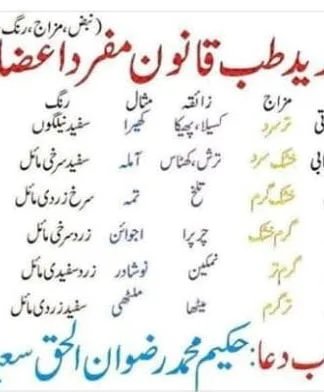 (نبض،مزاج،رنگ
ید طب قانون مفرد اعضا
مزاج ذائقہ مثال رنگ
تر سرد کسیلا، پھیکا کھیرا سفید نیلگوں
خشک سرد ترش،کھٹاس آملہ سفید سرخی مائل
خشک گرم تلخ تمہ سرخ زردی مائل
گرم خشک چرپرا اجوائن زرد سرخی مائل
گرم تر نمکین نوشادر زرد سفیدی مائل
تر گرم میٹھا ملٹھی سفید زردی مائل
ب دعا: حکیم محمد رضوان الحق سعی